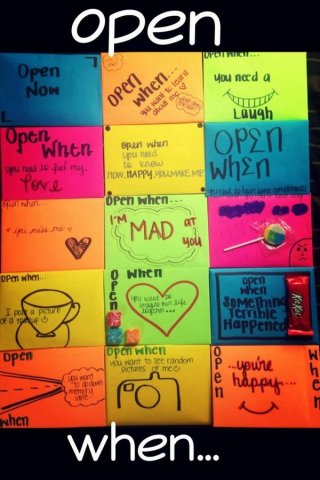 open
Open
Now
Open
when...
you want to learn
about me
Open when...
you need a
Laugh
Open
when
you need to feel my
Love
open when
you need
to know
HOW HAPPY YOU MAKE ME
OPEN
WHEN
you need to hear some compliments
Open when...
you miss me
open when...
I'M
MAD at
you
Open when...
I post a picture
of a
Open
when
you want to
imagine our life
together...
open
when
SOMETHING
Terrible
Happened
KitKat
Open
you want
to go down
memory
lane
when
Open when
you want to see random
pictures of me
Open
...you're
happy...
when
when...